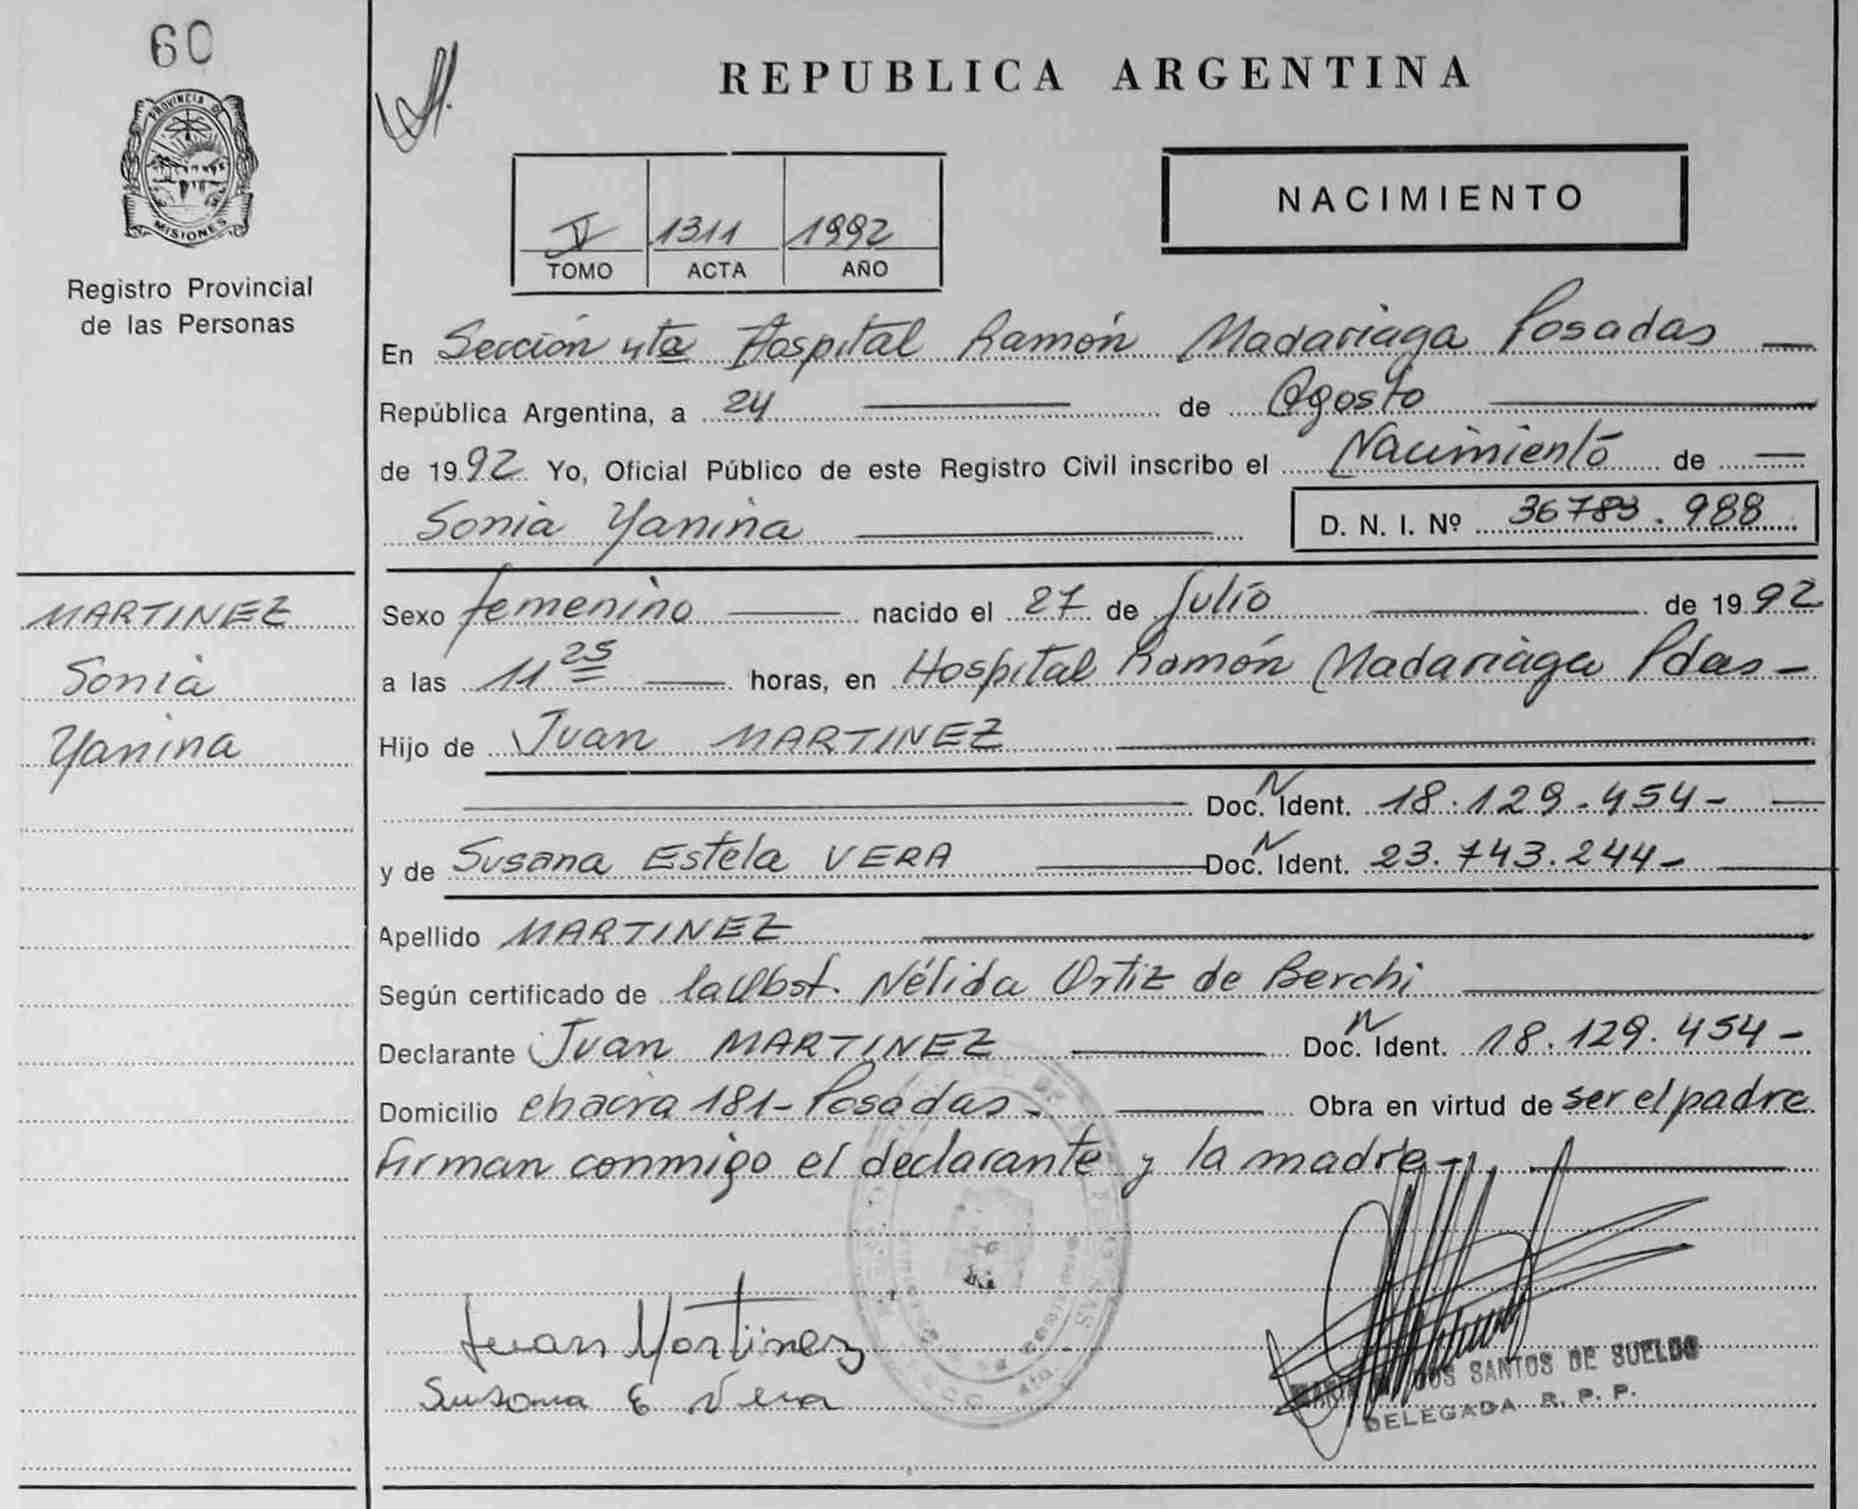 60
PROVINCIA DE
MISIONES
Registro Provincial
de las Personas
MARTINEZ
Sonia
Yanina
REPUBLICA ARGENTINA
NACIMIENTO
V 1311 1992
TOMO ACTA AÑO
En Sección 4ta Hospital Ramón Madariaga Posadas
República Argentina, a 24 de Agosto
de 1992 Yo, Oficial Público de este Registro Civil inscribo el Nacimiento de
Sonia Yanina D. N. I. Nº 36783.988
Sexo femenino nacido el 27 de Julio de 1992
a las 11 25 horas, en Hospital Ramón Madariaga Pdas-
Hijo de Juan MARTINEZ
Doc. N Ident. 18.129.454-
y de Susana Estela VERA Doc. N Ident. 23.743.244-
Apellido MARTINEZ
Según certificado de la Obst. Nélida Ortiz de Berchi
Declarante Juan MARTINEZ Doc. N Ident. 18.129.454-
Domicilio chacra 181- Posadas- Obra en virtud de ser el padre
Firman conmigo el declarante y la madre-
Juan Martinez
Susana E Vera
DOS SANTOS DE SUELDO
DELEGADA R. P. P.